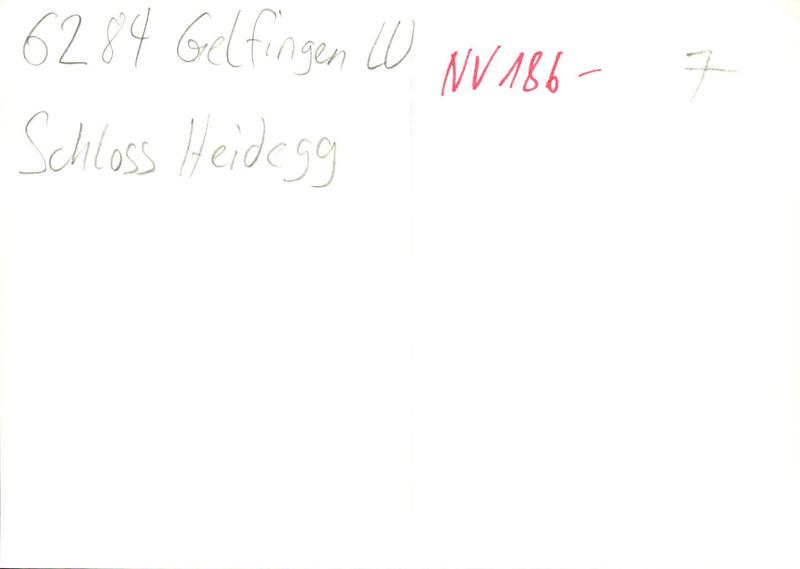 6284 Gelfingen LU
Schloss Heidegg
NV 186 -
7